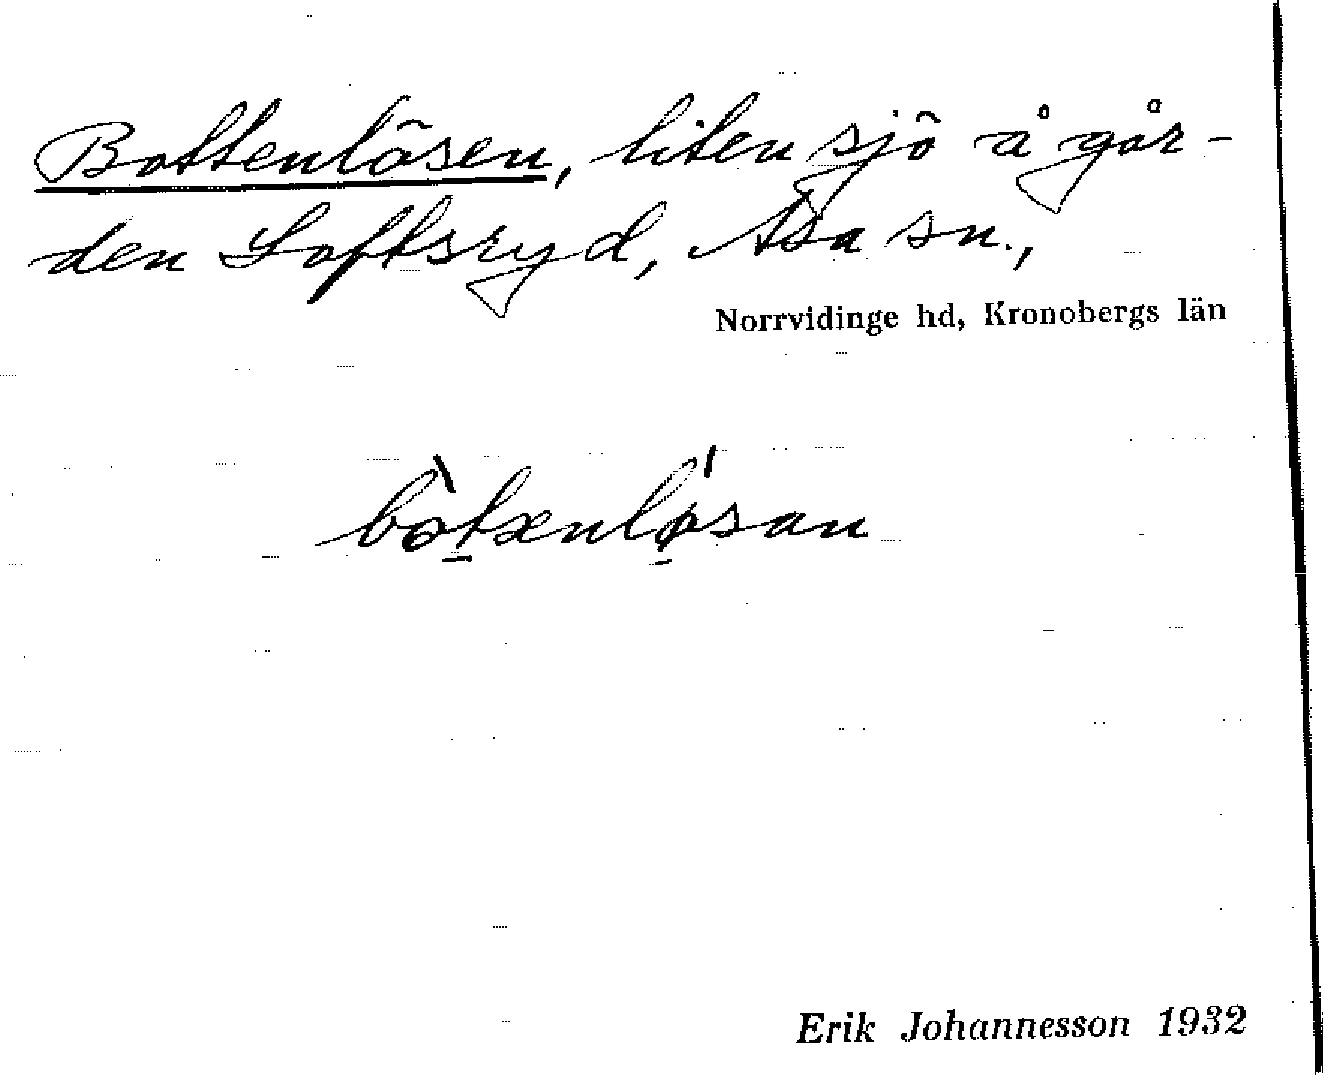 Bottenlösen, liten sjö å går-
den Loftsryd, Asa sn.,
Norrvidinge hd, Kronobergs län
bòtænlø̀san
Erik Johannesson 1932